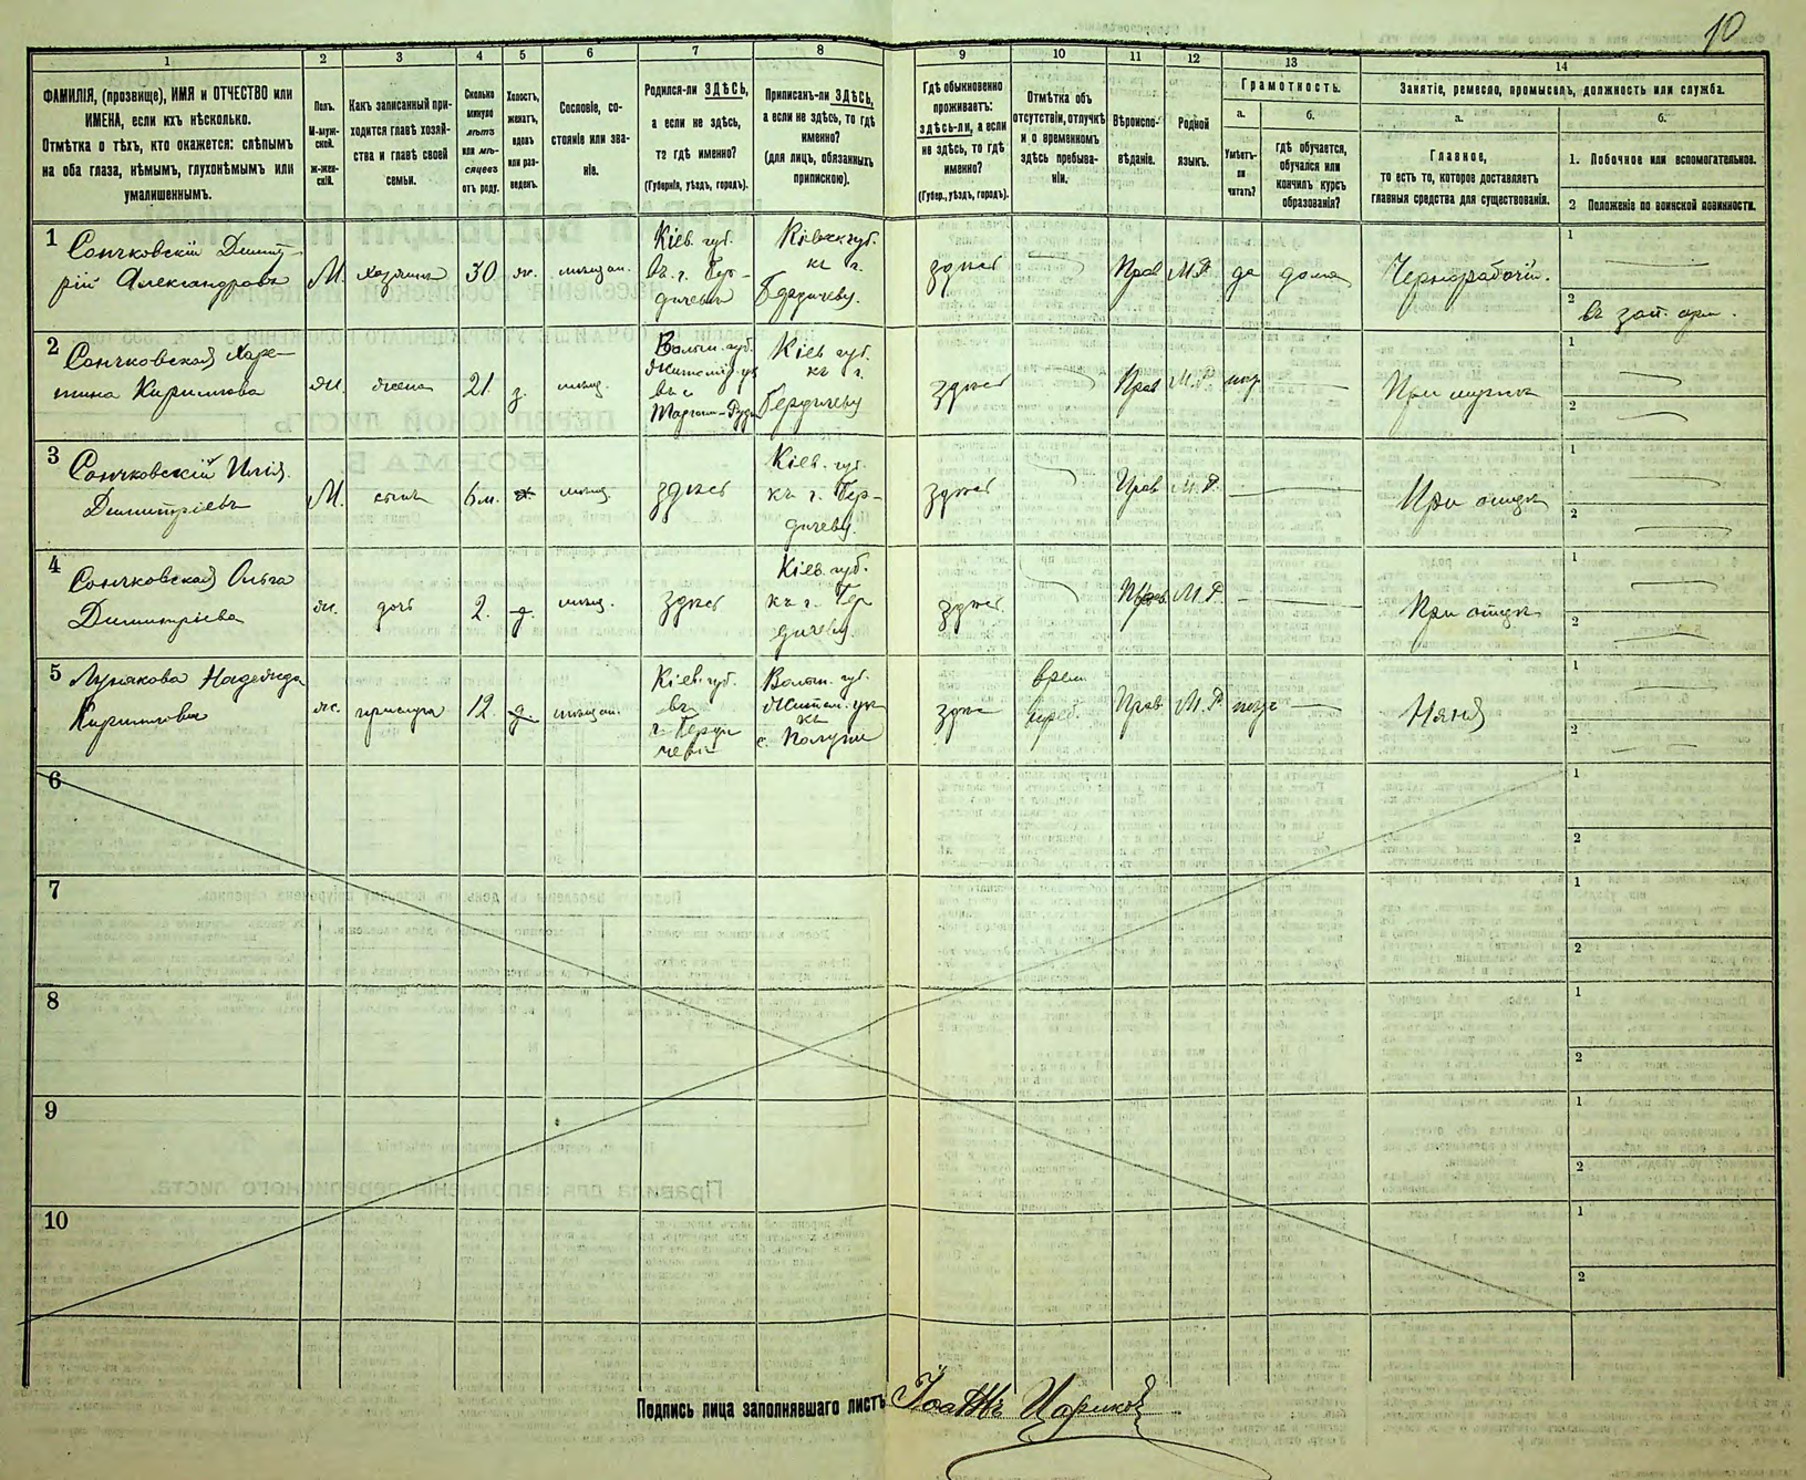 10
1
2
3
4
5
6
7
8
9
10
11
12
13
14
ФАМИЛІЯ, (прозвище), ИМЯ и ОТЧЕСТВО или
ИМЕНА, если ихъ нѣсколько.
Отмѣтка о тѣхъ, кто окажется: слѣпымъ
на оба глаза, нѣмымъ, глухонѣмымъ или
умалишеннымъ.
Полъ.
М-муж-
ской.
ж-жен-
скій.
Какъ записанный при-
ходится главѣ хозяй-
ства и главѣ своей
семьи.
Сколько
минуло
лѣтъ
или мѣ-
сяцевъ
отъ роду.
Холостъ,
женатъ,
вдовъ
или раз-
веденъ.
Сословіе, со-
стояніе или зва-
ніе.
Родился-ли ЗДѢСЬ,
а если не здѣсь,
то гдѣ именно?
(Губернія, уѣздъ, городъ).
Приписанъ-ли ЗДѢСЬ,
а если не здѣсь, то гдѣ
именно?
(для лицъ, обязанныхъ
припискою).
Гдѣ обыкновенно
проживаетъ:
здѣсь-ли, а если
не здѣсь, то гдѣ
именно?
(Губер., уѣздъ, городъ).
Отмѣтка объ
отсутствіи, отлучкѣ
и о временномъ
здѣсь пребыва-
ніи.
Вѣроиспо-
вѣданіе.
Родной
языкъ.
Грамотность.
а.
Умѣетъ-
ли
читать?
б.
гдѣ обучается,
обучался или
кончилъ курсъ
образованія?
Занятіе, ремесло, промыселъ, должность или служба.
а.
Главное,
то есть то, которое доставляетъ
главныя средства для существованія.
б.
1. Побочное или вспомогательное.
2 Положеніе по воинской повинности.
1
Димит-
рій Александровъ
М.
хозяинъ
30
ж.
мѣщан.
Кіев. губ.
въ г. Бер-
дичевѣ
Кіевск. губ.
къ г.
Бердичеву.
здѣсь
Прав
М.Р.
да
дома
Чернорабочій.
1
2
въ зап. арм.
2
Харе-
тина Кирилова
ж.
жена
21
з.
мѣщ.
Волын. губ.
Житомір. у.
въ с.
Кіев. губ.
къ г.
Бердичеву
здѣсь
Прав
М.Р.
При мужѣ
1
2
3
Илія
Димитріевъ
М.
сынъ
6 м.
х
мѣщ.
здѣсь
Кіев. губ.
къ г. Бер-
дичеву.
здѣсь
Прав
М.Р.
При отцѣ
1
2
4
Ольга
Димитріева
ж.
дочь
2.
д.
мѣщ.
здѣсь
Кіев. губ.
къ г. Бер
дичеву.
здѣсь.
Прав.
М.Р.
При отцѣ
1
2
5
Надежда
Кирилова
ж.
прислуга
12.
д.
мѣщан.
Кіев. губ.
въ
г. Берди
чевѣ
Волын. губ.
Житом. у.
къ
с.
здѣсь
врем.
преб.
Прав.
М.Р.
Няня
1
2
6
1
2
7
1
2
8
1
2
9
1
2
10
1
2
Подпись лица заполнявшаго листъ